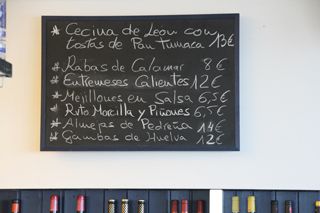 * Cecina de Leon con
tostas de Pan Tumaca 13€
* Rabas de Calamar 8€
* Entremeses Calientes 12€
* Mejillones en Salsa 6,5€
* Rvto Morcilla y Piñones 6,5€
* Almejas de Pedreña 14€
* Gambas de Huelva 12€